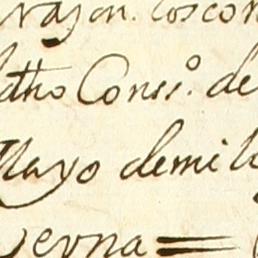 razon. los con
dho Conssº. de
Mayo de mil
erna =